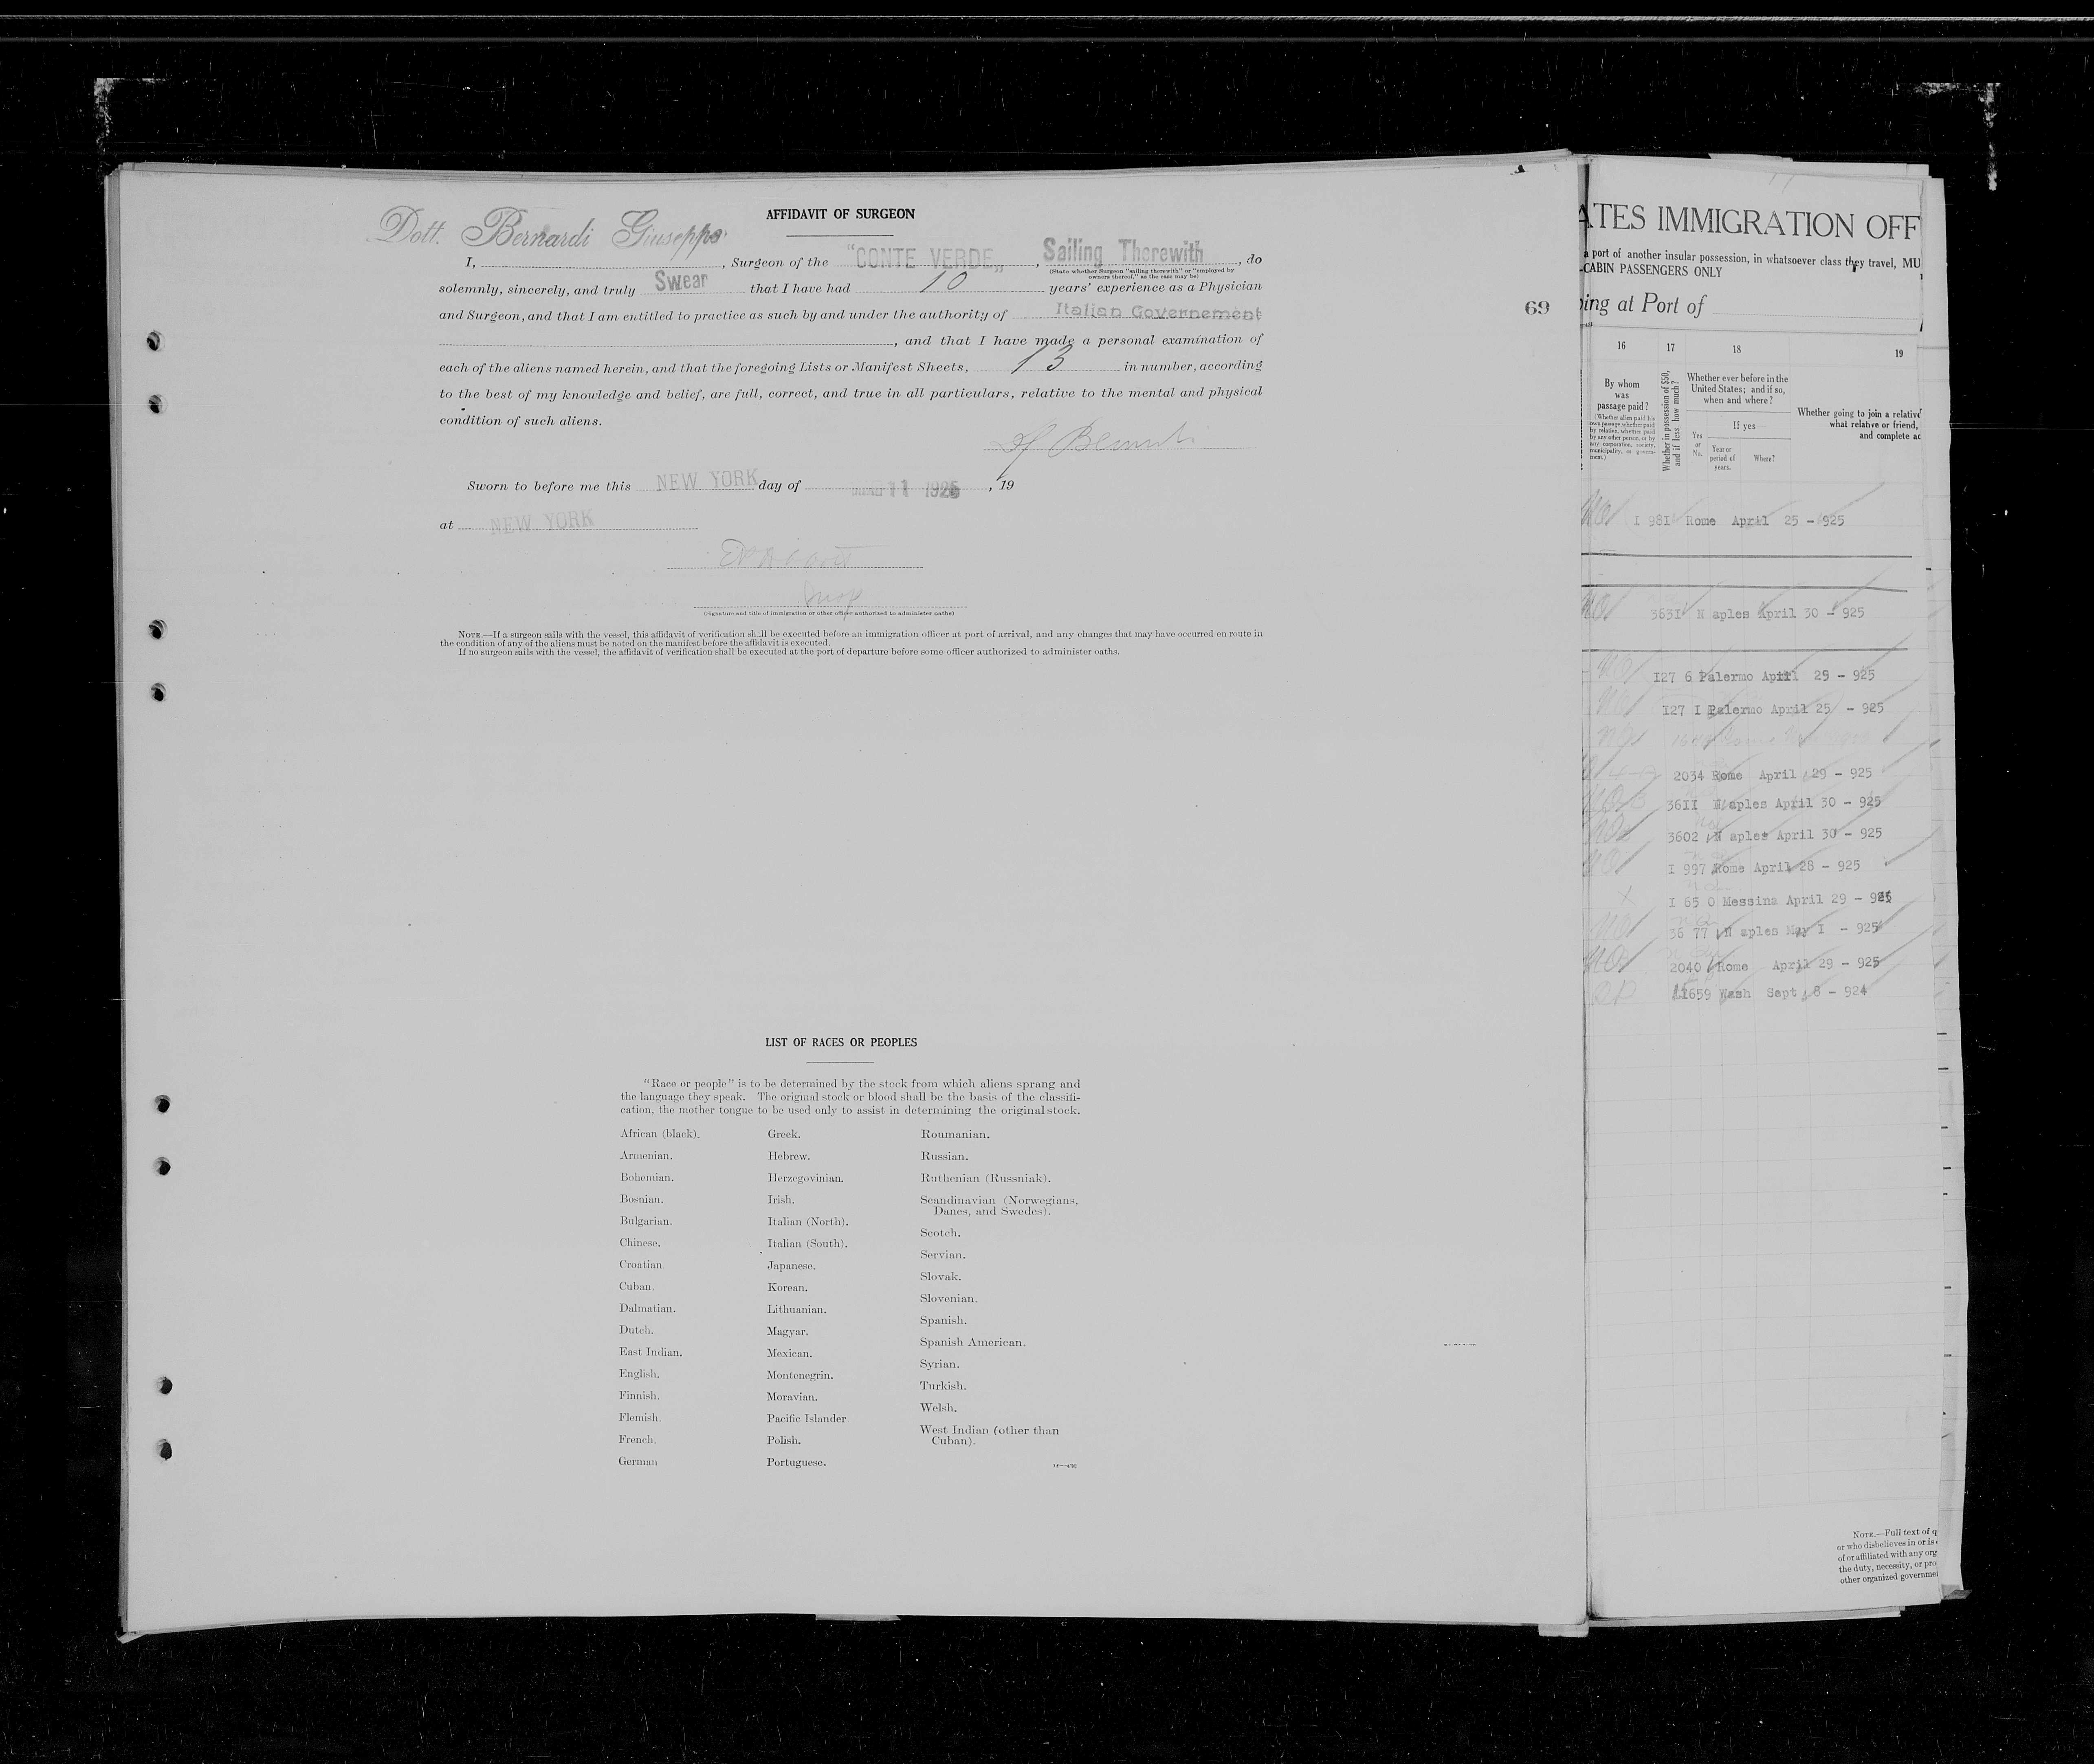 AFFIDAVIT OF SURGEON
Dott. Bernardi Giuseppe
I, , Surgeon of the "CONTE VERDE", Sailing Therewith, do
(State whether Surgeon "sailing therewith" or "employed by
owners thereof," as the case may be)
solemnly, sincerely, and truly Swear that I have had 10 years' experience as a Physician
and Surgeon, and that I am entitled to practice as such by and under the authority of Italian Governement
, and that I have made a personal examination of
each of the aliens named herein, and that the foregoing Lists or Manifest Sheets, 13 in number, according
to the best of my knowledge and belief, are full, correct, and true in all particulars, relative to the mental and physical
condition of such aliens.
Sworn to before me this NEW YORK day of 11 1925, 19
at NEW YORK
Insp
(Signature and title of immigration or other officer authorized to administer oaths)
NOTE.—If a surgeon sails with the vessel, this affidavit of verification shall be executed before an immigration officer at port of arrival, and any changes that may have occurred en route in
the condition of any of the aliens must be noted on the manifest before the affidavit is executed.
If no surgeon sails with the vessel, the affidavit of verification shall be executed at the port of departure before some officer authorized to administer oaths.
LIST OF RACES OR PEOPLES
"Race or people" is to be determined by the stock from which aliens sprang and
the language they speak. The original stock or blood shall be the basis of the classifi-
cation, the mother tongue to be used only to assist in determining the original stock.
African (black).
Armenian.
Bohemian.
Bosnian.
Bulgarian.
Chinese.
Croatian.
Cuban.
Dalmatian.
Dutch.
East Indian.
English.
Finnish.
Flemish.
French.
German
Greek.
Hebrew.
Herzegovinian.
Irish.
Italian (North).
Italian (South).
Japanese.
Korean.
Lithuanian.
Magyar.
Mexican.
Montenegrin.
Moravian.
Pacific Islander
Polish.
Portuguese.
Roumanian.
Russian.
Ruthenian (Russniak).
Scandinavian (Norwegians,
Danes, and Swedes).
Scotch.
Servian.
Slovak.
Slovenian.
Spanish.
Spanish American.
Syrian.
Turkish.
Welsh.
West Indian (other than
Cuban).
69
ATES IMMIGRATION OFF
a port of another insular possession, in whatsoever class they travel, MU
-CABIN PASSENGERS ONLY
ing at Port of
16
17
18
19
By whom
was
passage paid?
(Whether alien paid his
own passage, whether paid
by relative, whether paid
by any other person, or by
any corporation, society,
municipality, or govern-
ment.)
Whether in possession of $50,
and if less, how much?
Whether ever before in the
United States; and if so,
when and where?
Yes
or
No.
If yes
Year or
period of
years.
Where?
Whether going to join a relative
what relative or friend,
and complete ad
I 98I Rome April 25 - 925
363I N aples April 30 - 925
I27 6 Palermo April 29 - 925
I27 I Palermo April 25 - 925
2034 Rome April 29 - 925
36II N aples April 30 - 925
3602 N aples April 30 - 925
I 997 Rome April 28 - 925
I 65 0 Messina April 29 - 925
36 77 N aples May I - 925
2040 Rome April 29 - 925
1659 Wash Sept 8 - 924
NOTE.—Full text of q
or who disbelieves in or is
of or affiliated with any org
the duty, necessity, or pro
other organized governme